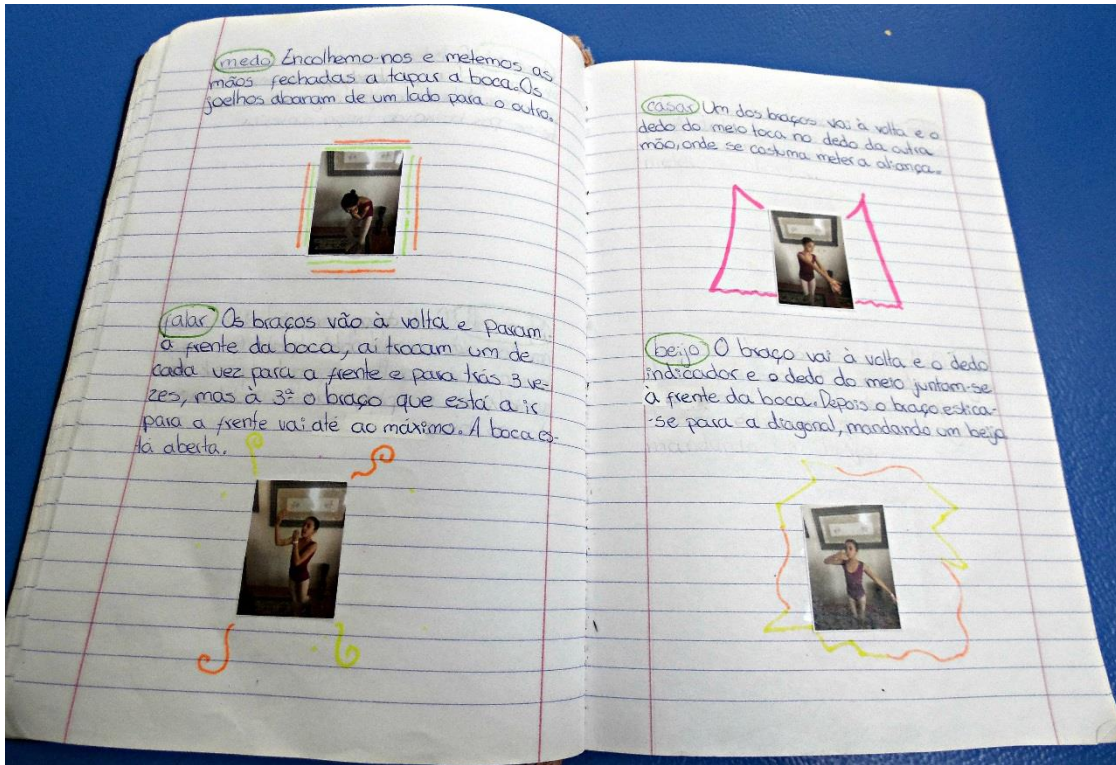 medo Encolhemo-nos e metemos as
mãos fechadas a tapar a boca. Os
joelhos abanam de um lado para o outro.
falar Os braços vão à volta e param
à frente da boca, aí trocam um de
cada vez para a frente e para trás 3 ve-
zes, mas à 3ª o braço que está a ir
para a frente vai até ao máximo. A boca es-
tá aberta.
casar Um dos braços vai à volta e o
dedo do meio toca no dedo da outra
mão, onde se costuma meter a aliança.
beijo O braço vai à volta e o dedo
indicador e o dedo do meio juntam-se
à frente da boca. Depois o braço estica-
-se para a diagonal, mandando um beijo